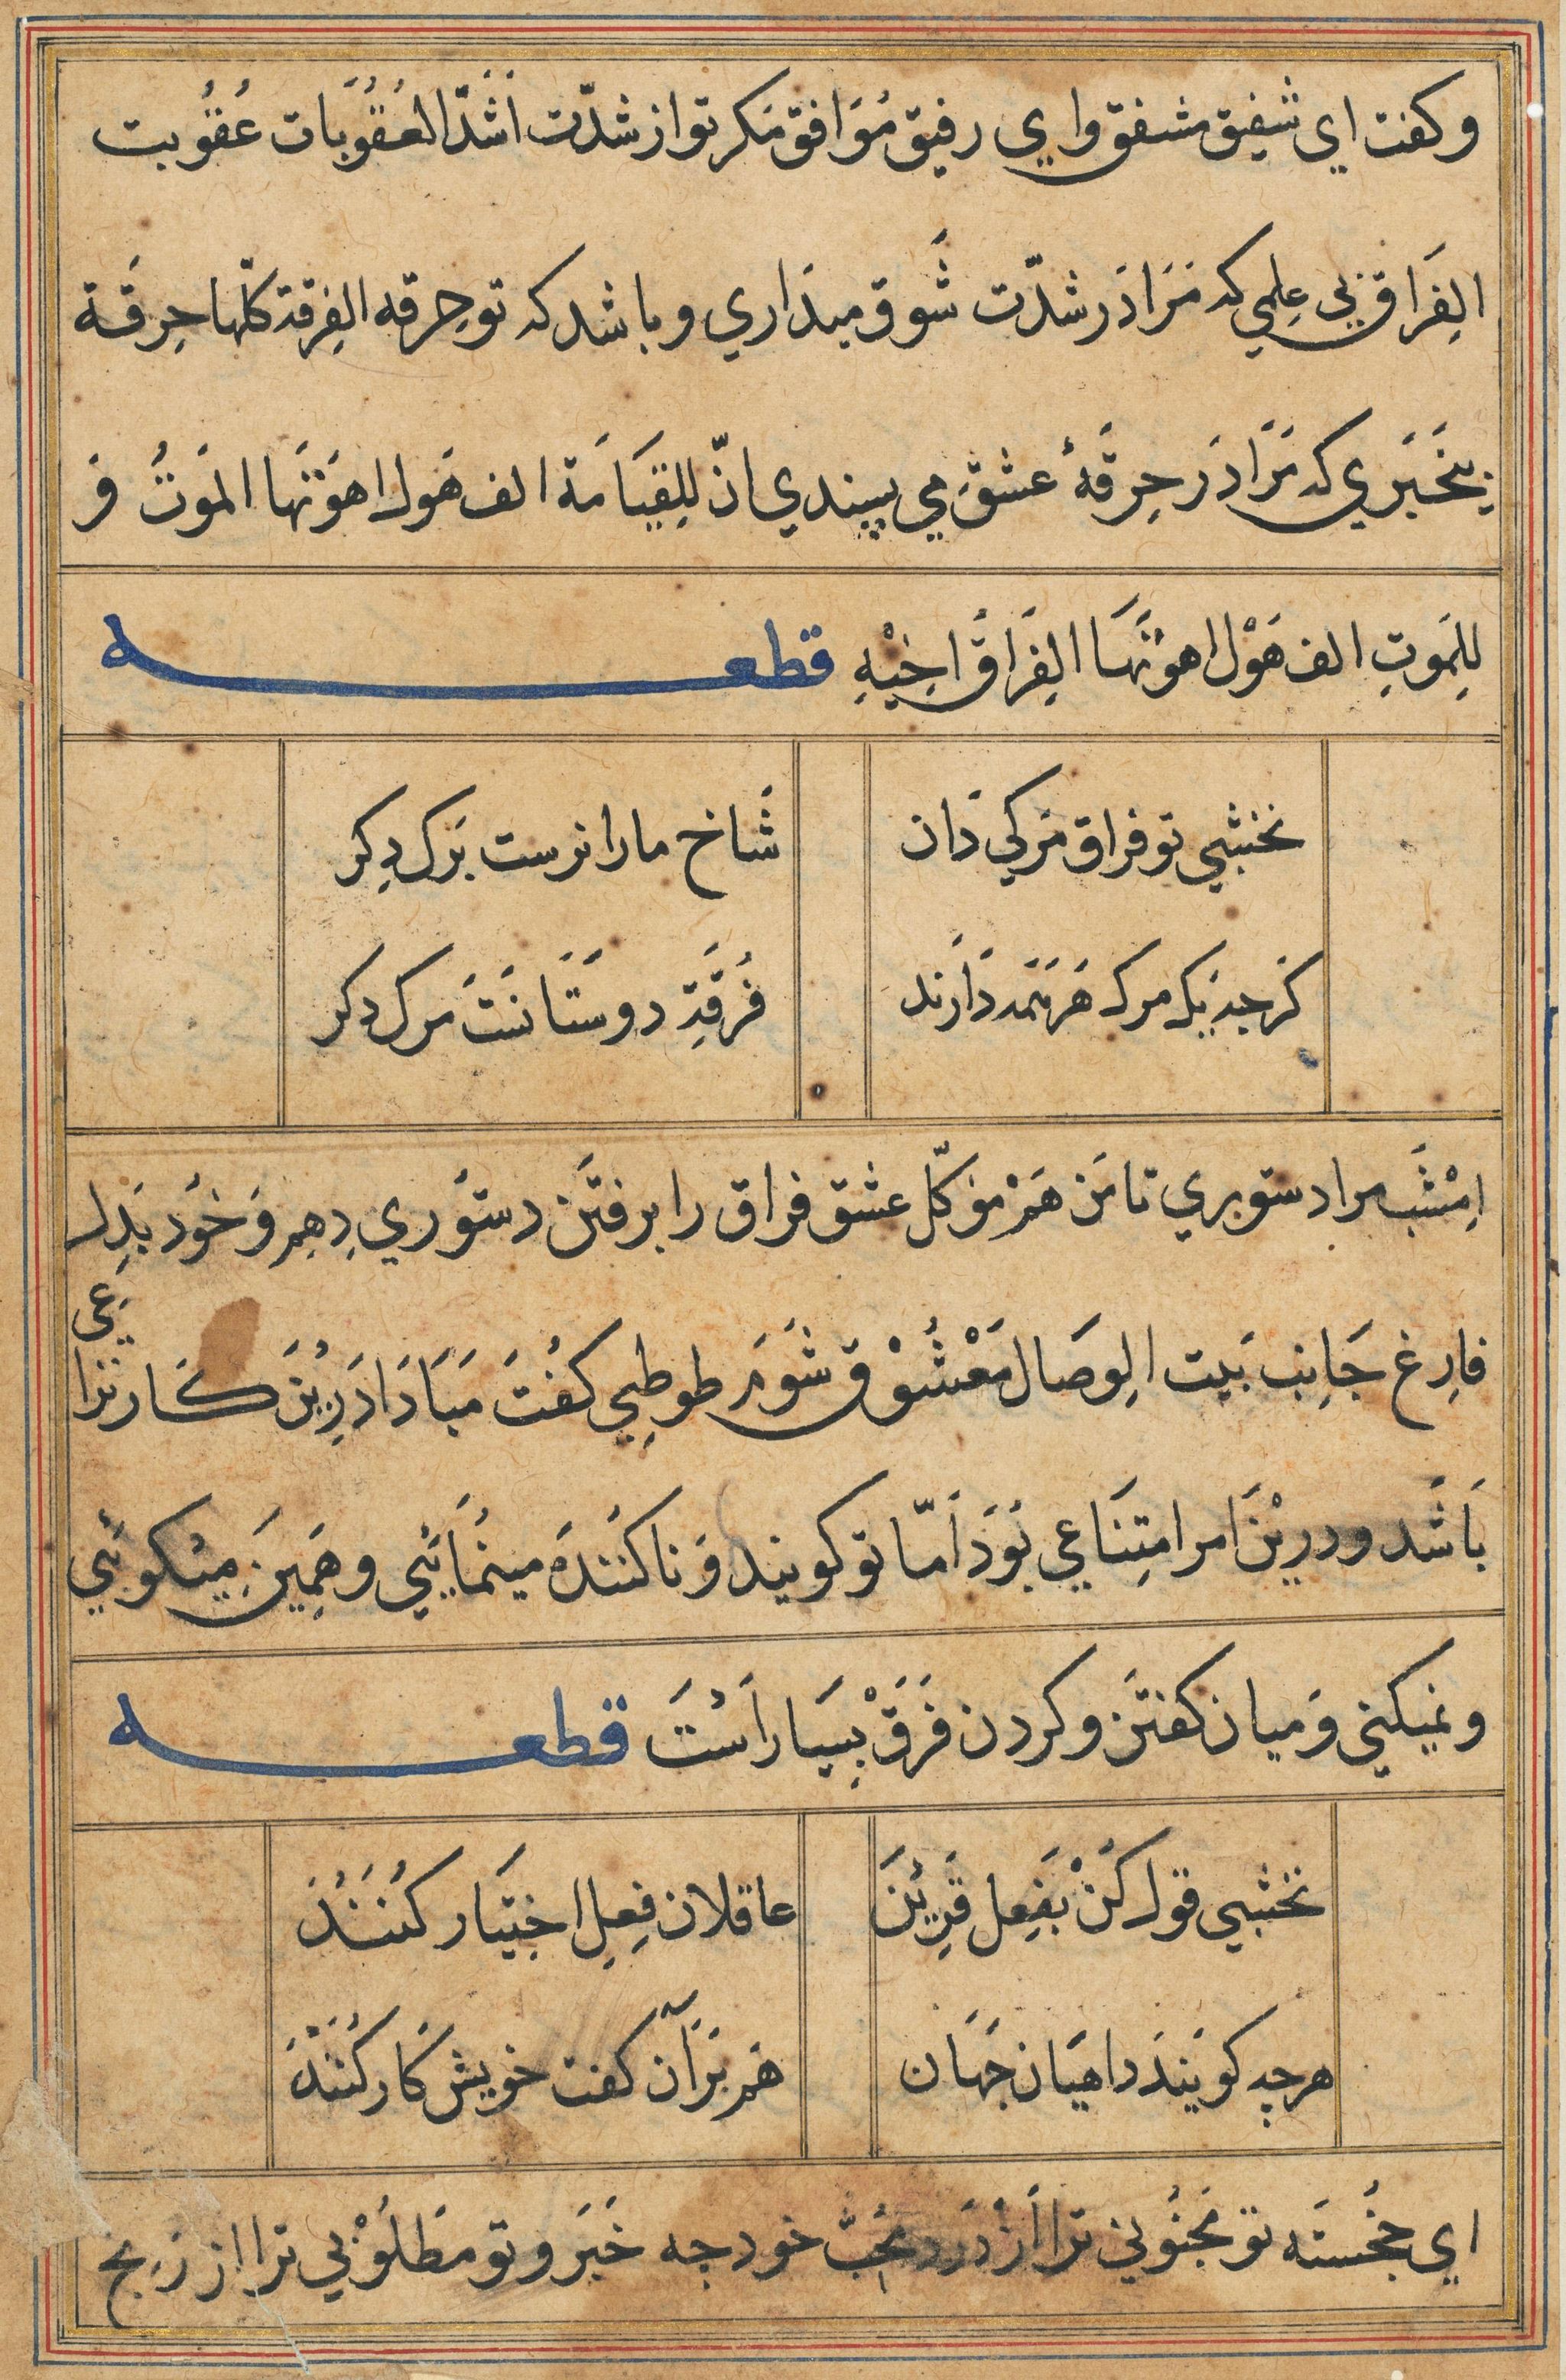 وكفت اي شفيق مشفق واي رفيق مُوَافق مَكر تو از شدّت اَشَدّ العُقُوبَات عُقُوبت
الفِرَاق بي عِلمي كه مَرَا دَر شدّت شَوق ميدَاري و باشد كه تو حِرقه الفِرقة كلّها حِرقَة
بيخَبَري كه مَرَا دَر حِرقَهٔ عشق مي پسندي انّ لِلقِيَامَة الف هَول اهوَنَها المَوتُ وَ
لِلمَوتِ الف هَوْل اهوَنَهَا الفِرَاقَ اخِيْهِ قطعه
نخشبي تو فراق مَركي دَان
شَاخ ما را نرست بَرك دِكر
كَرچه يَك مرك هَر همَه دَارند
فُرقَتِ دوستَانَتَ مرك دكر
اِمْشَب مرا دستوري تا مَن هَمْ مؤكّل عشق فراق را برفتَن دستوُري دِهم وَخوُد بَدِل
فارِغ جَانِب بَيت الوِصَال مَعْشُوْق شَوَم طوطِي كفُتَ مَبَادَا دَرِيْنَ كَار تَرا
عي
بَاشَد و دريْنَ امر امتِنَاعي بَوَد اَمّا تو كوينده وَ ناكنَندَه مينمُايَئي وهَمِينَ ميكويَئي
و نميكني وَ ميان كفتَن و كردن فَرَقْ بِسيَار اَسْتَ قطعه
نخشبي قول كَنْ بَفِعل قَرِيْنَ
عاقلان فِعِل اختيَار كُنَنْد
هرچه كويَندَ داهيَان جَهَان
هَم بَرَآن كفت خويش كَار كُنَنْدَ
اي خجُستَه تو مَجنُوني ترا اَز دَرد مُحِبّ خود چه خَبَر و تو مَطلُوْبي ترا از رَنج